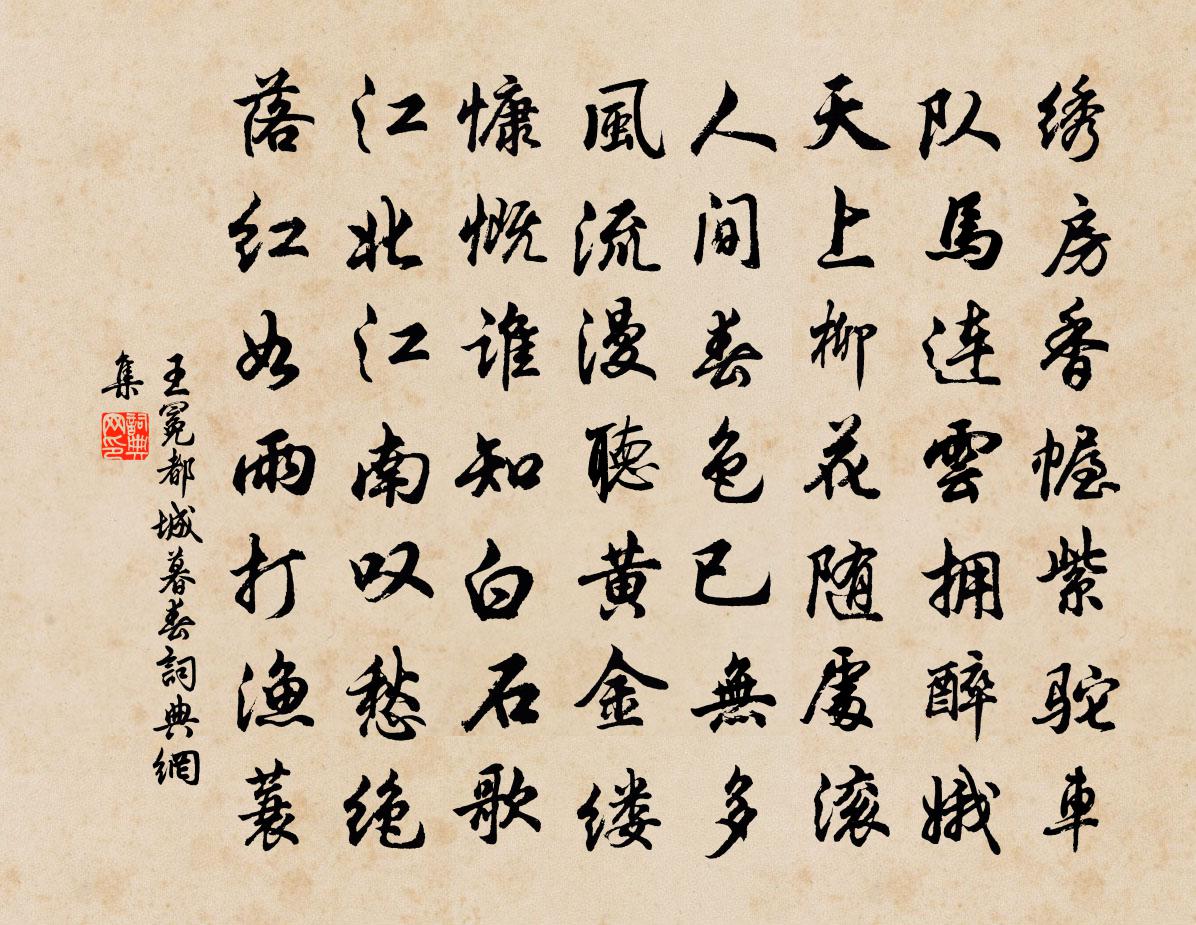 绣房香幄紫驼車
队馬连雲拥醉娥
天上柳花随處滚
人间春色已無多
風流漫聴黄金缕
慷慨谁知白石歌
江北江南叹愁绝
落红如雨打漁蓑
王冕都城暮春詞典網
集
詞典
网印